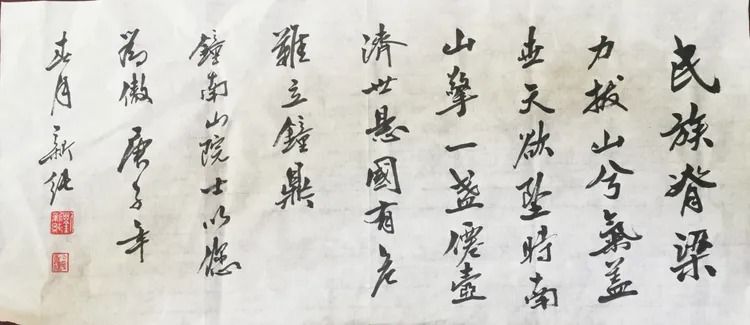 民族脊梁
力拔山兮氣蓋
世天欲墜時南
山擎一盏僊壺
濟世悬國有危
難立鐘鼎
鐘南山院士以您
為傲 庚子年
春月 新純